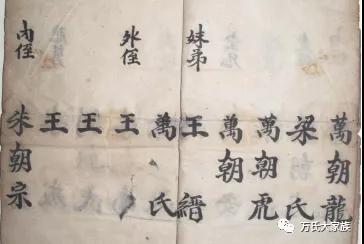 萬朝龍
梁氏
萬朝虎
萬朝
妹弟
王縉
萬氏
外侄
王
王
王
内侄
朱朝宗
万氏大家族